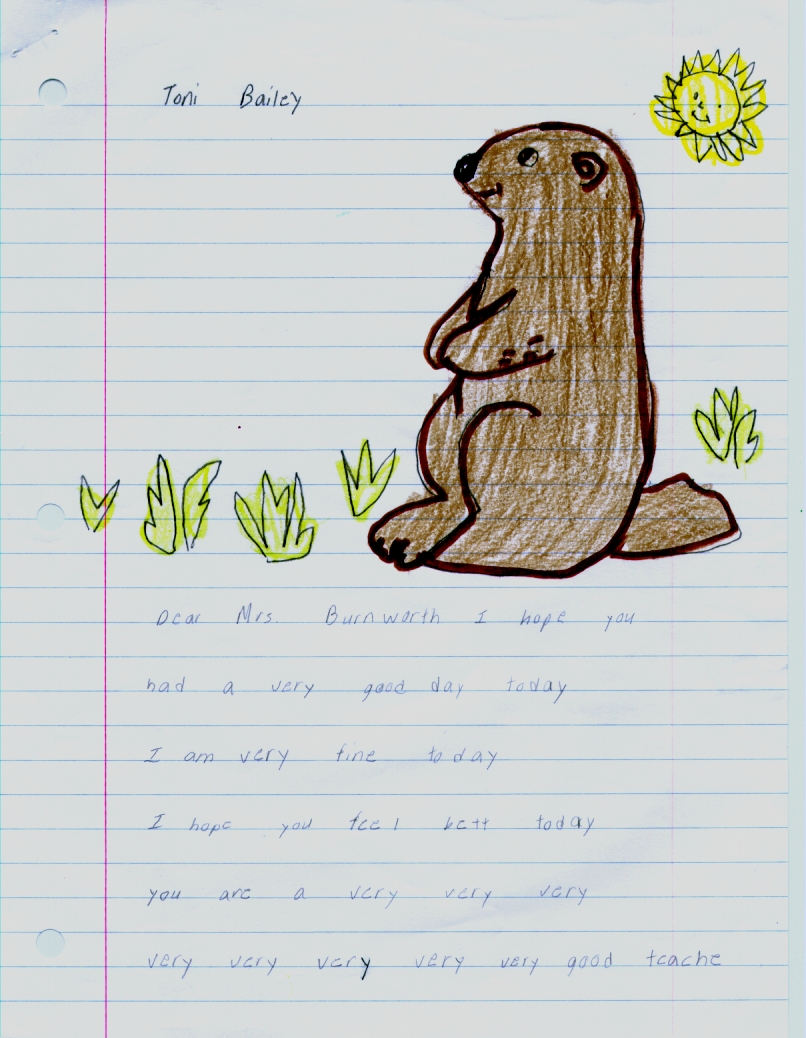 Toni Bailey
Dear Mrs. Burnworth I hope you
had a very good day today
I am very fine today
I hope you feel bett today
you are a very very very
very very very very very good teache